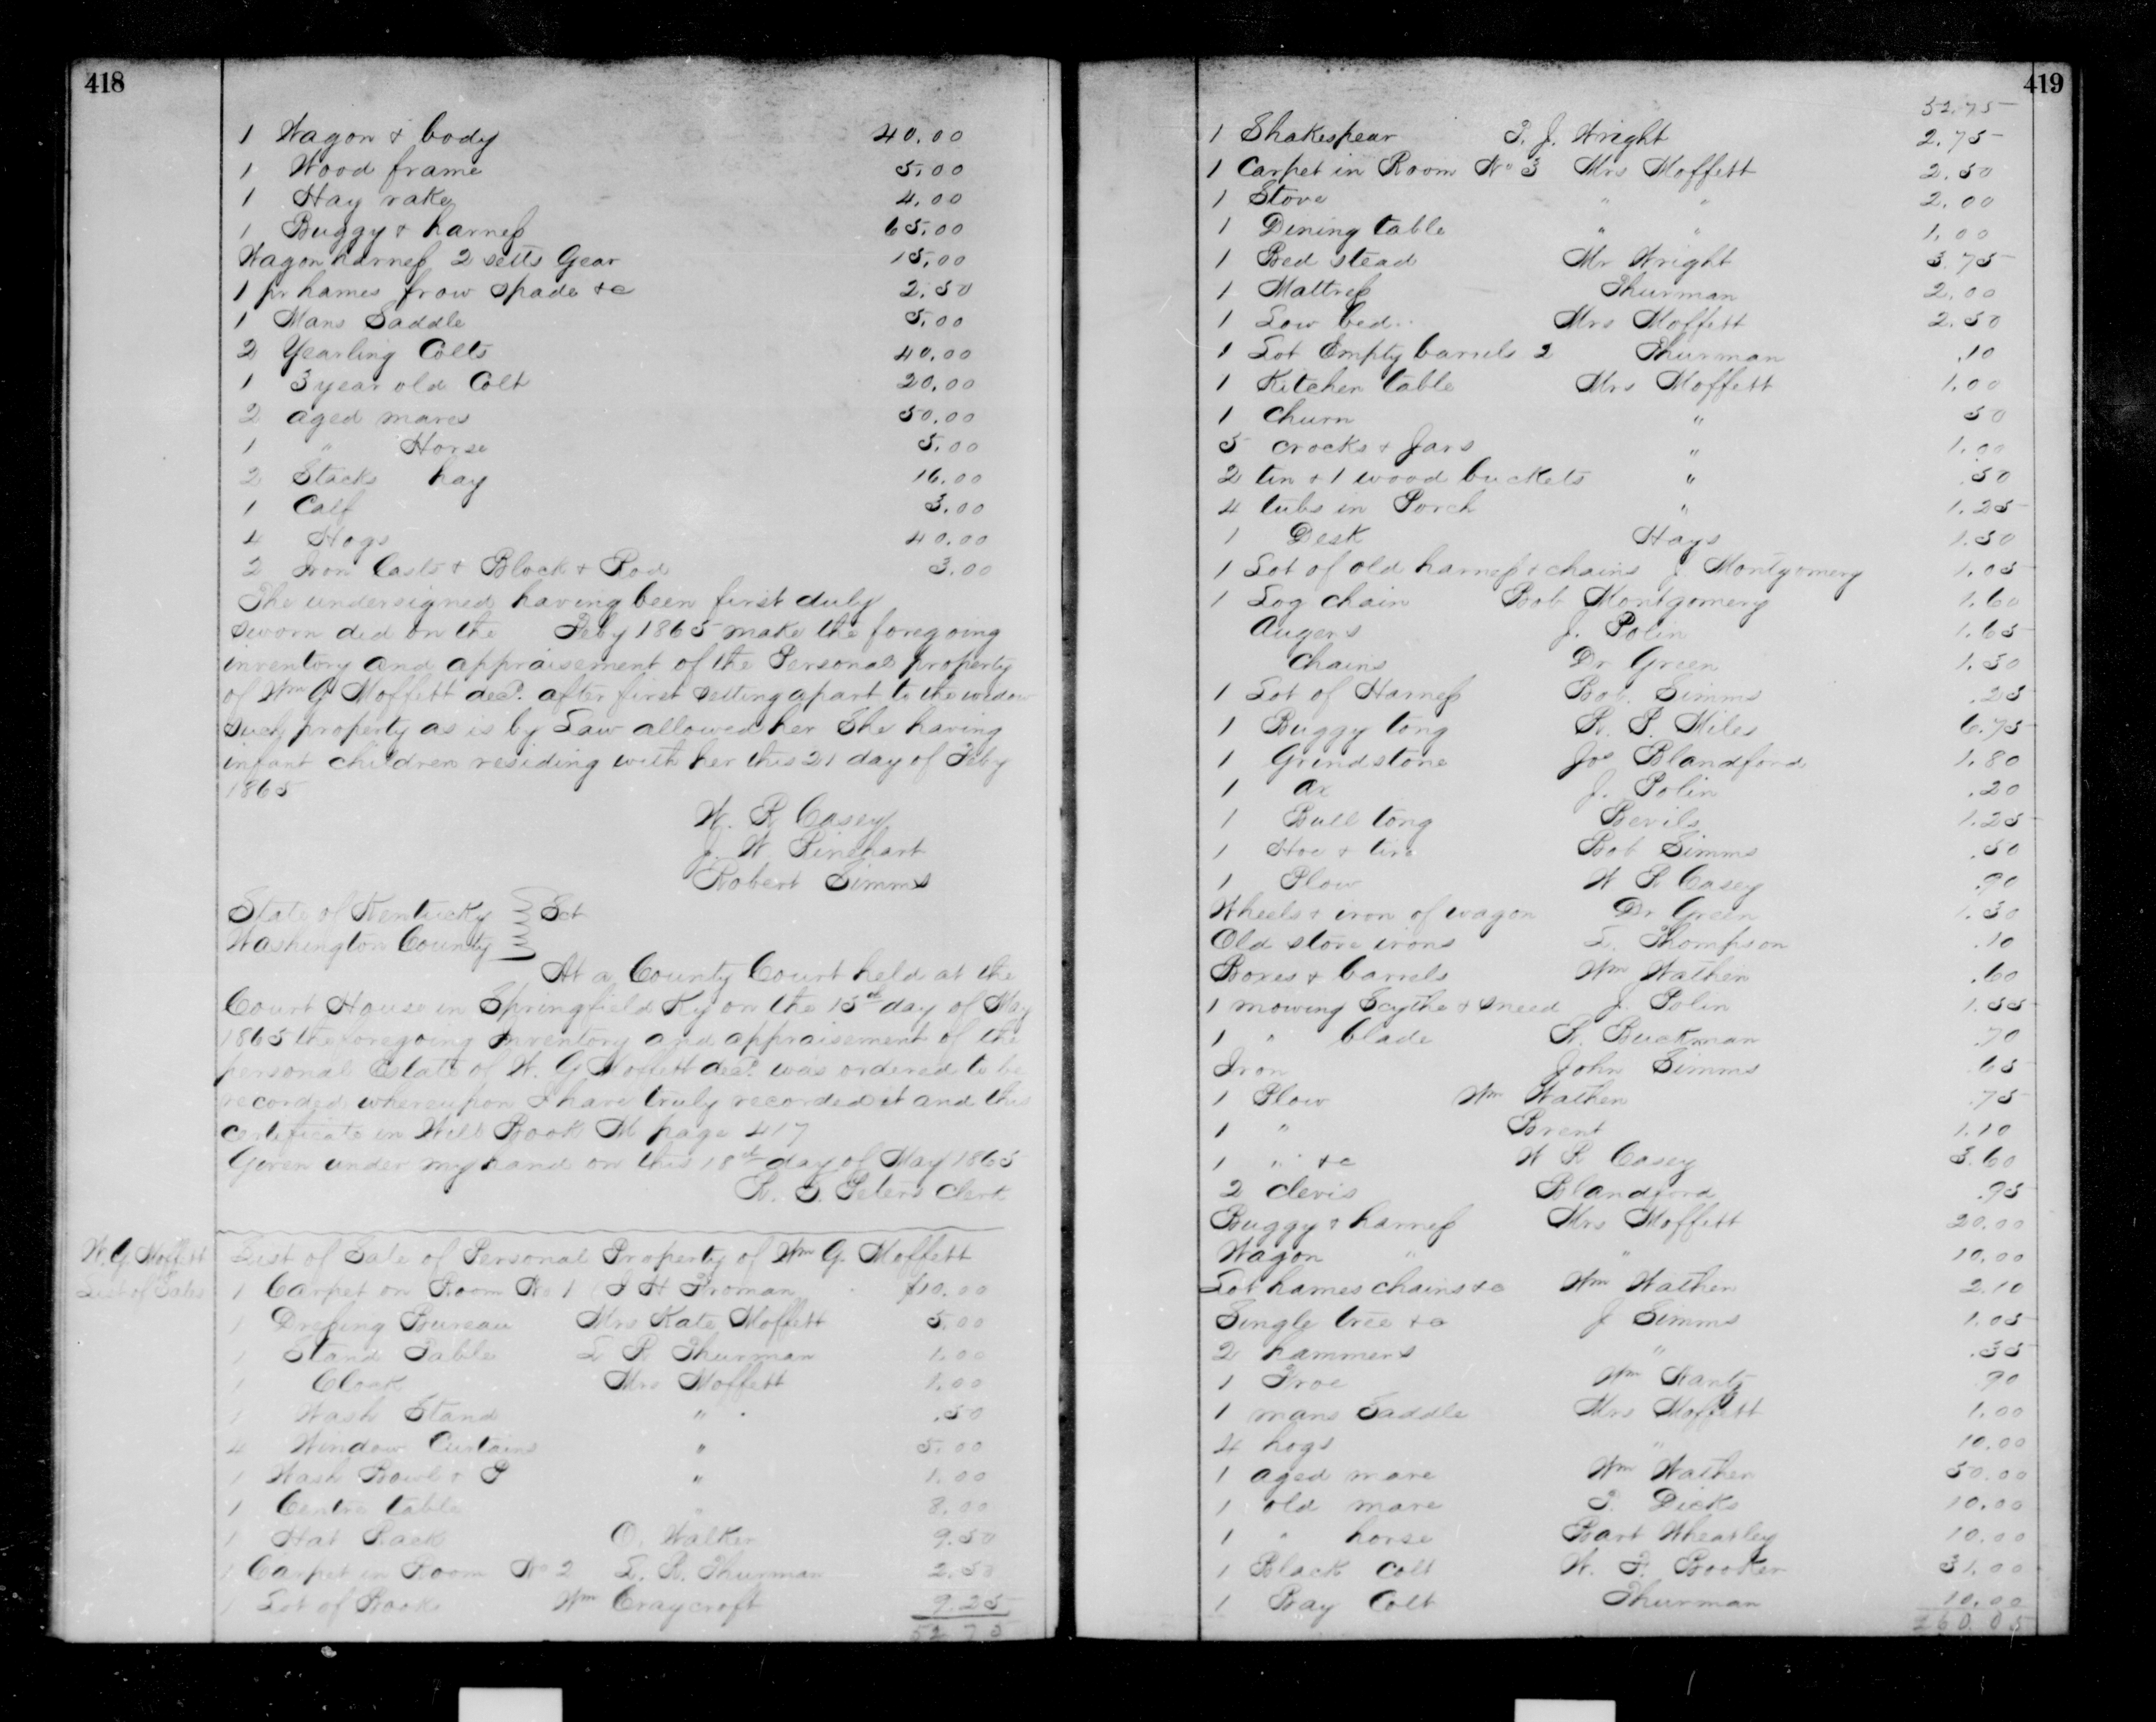 418
1 Wagon & body 40.00
1 Wood frame 5.00
1 Hay rake 4.00
1 Buggy & harness 65.00
Wagon harness 2 setts Gear 15.00
1 pr hames frow spade &c 2.50
1 Mans Saddle 5.00
2 Yearling Colts 40.00
1 3 year old Colt 20.00
2 aged mares 50.00
1 " Horse 5.00
2 Stacks hay 16.00
1 Calf 3.00
4 Hogs 40.00
2 Iron Casts & Block & Rod 3.00
The undersigned having been first duly
sworn did on the Feby 1865 make the foregoing
inventory and appraisement of the Personal property
of Wm G Moffett decd. after first setting apart to the widow
such property as is by Law allowed her She having
infant children residing with her this 21 day of Feby
1865
W. R. Casey
J. W. Rinehart
Robert Simms
State of Kentucky } Sct
Washington County }
At a County Court held at the
Court House in Springfield Ky on the 15th day of May
1865 the foregoing Inventory and appraisement of the
personal Estate of W. G Moffett decd. was ordered to be
recorded whereupon I have truly recorded it and this
certificate in Will Book M page 417
Given under my hand on this 18th day of May 1865
Peters Clerk
W. G Moffett
List of Sales
List of Sale of Personal Property of Wm G. Moffett
1 Carpet on Room No 1 Froman $10.00
1 Dressing Bureau Mrs Kate Moffett 5.00
1 Stand Table L R Thurman 1.00
1 Cloak Mrs Moffett 1.00
1 Wash Stand " .50
4 Window Curtains " 5.00
1 Wash Bowl & P " 1.00
1 Centre table " 8.00
1 Hat Rack O. Walker 9.50
1 Carpet in Room No 2 L. R. Thurman 2.50
1 Lot of Books Wm Craycroft 9.25
52.75
419
52.75
1 Shakespear P. J. Wright 2.75
1 Carpet in Room No 3 Mrs Moffett 2.50
1 Stove " " 2.00
1 Dining table " " 1.00
1 Bed stead Mr Wright 3.75
1 Mattress Thurman 2.00
1 Low bed Mrs Moffett 2.50
1 Lot Empty barrels 2 Thurman .10
1 Kitchen table Mrs Moffett 1.00
1 Churn " 50
5 crocks & Jars " 1.00
2 tin & 1 wood buckets " .50
4 tubs in Porch " 1.25
1 Desk Hays 1.50
1 Lot of old harness & chains J. Montgomery 1.05
1 Log chain Bob Montgomery 1.60
Augers J. Polin 1.65
Chains Dr Green 1.30
1 Lot of Harness Bob. Simms .25
1 Buggy tong Miles 6.75
1 Grindstone Jos Blandford 1.80
1 ax J. Polin .20
1 Bull tong Bevils 1.25
1 Hoe & tire Bob Simms .50
1 Plow W R Casey .90
Wheels & iron of wagon Dr Green 1.30
Old stove irons L. Thompson .10
Boxes & barrels Wm Wathen .60
1 mowing Scythe & sneed J. Polin 1.55
1 " blade Buckman .70
Iron John Simms 65
1 Plow Wm Wathen .75
1 " Brent 1.10
1 " &c W R Casey 3.60
2 clevis Blandford .95
Buggy & harness Mrs Moffett 20.00
Wagon " " 10.00
Lot hames chains &c Wm Wathen 2.10
Single tree &c J Simms 1.05
2 hammers " .35
1 Froe Wm 90
1 mans Saddle Mrs Moffett 1.00
4 hogs " 10.00
1 aged mare Wm Wathen 50.00
1 old mare Dicks 10.00
1 " horse Bart Wheatley 10.00
1 Black Colt Booker 31.00
1 Bay Colt Thurman 10.00
260.05